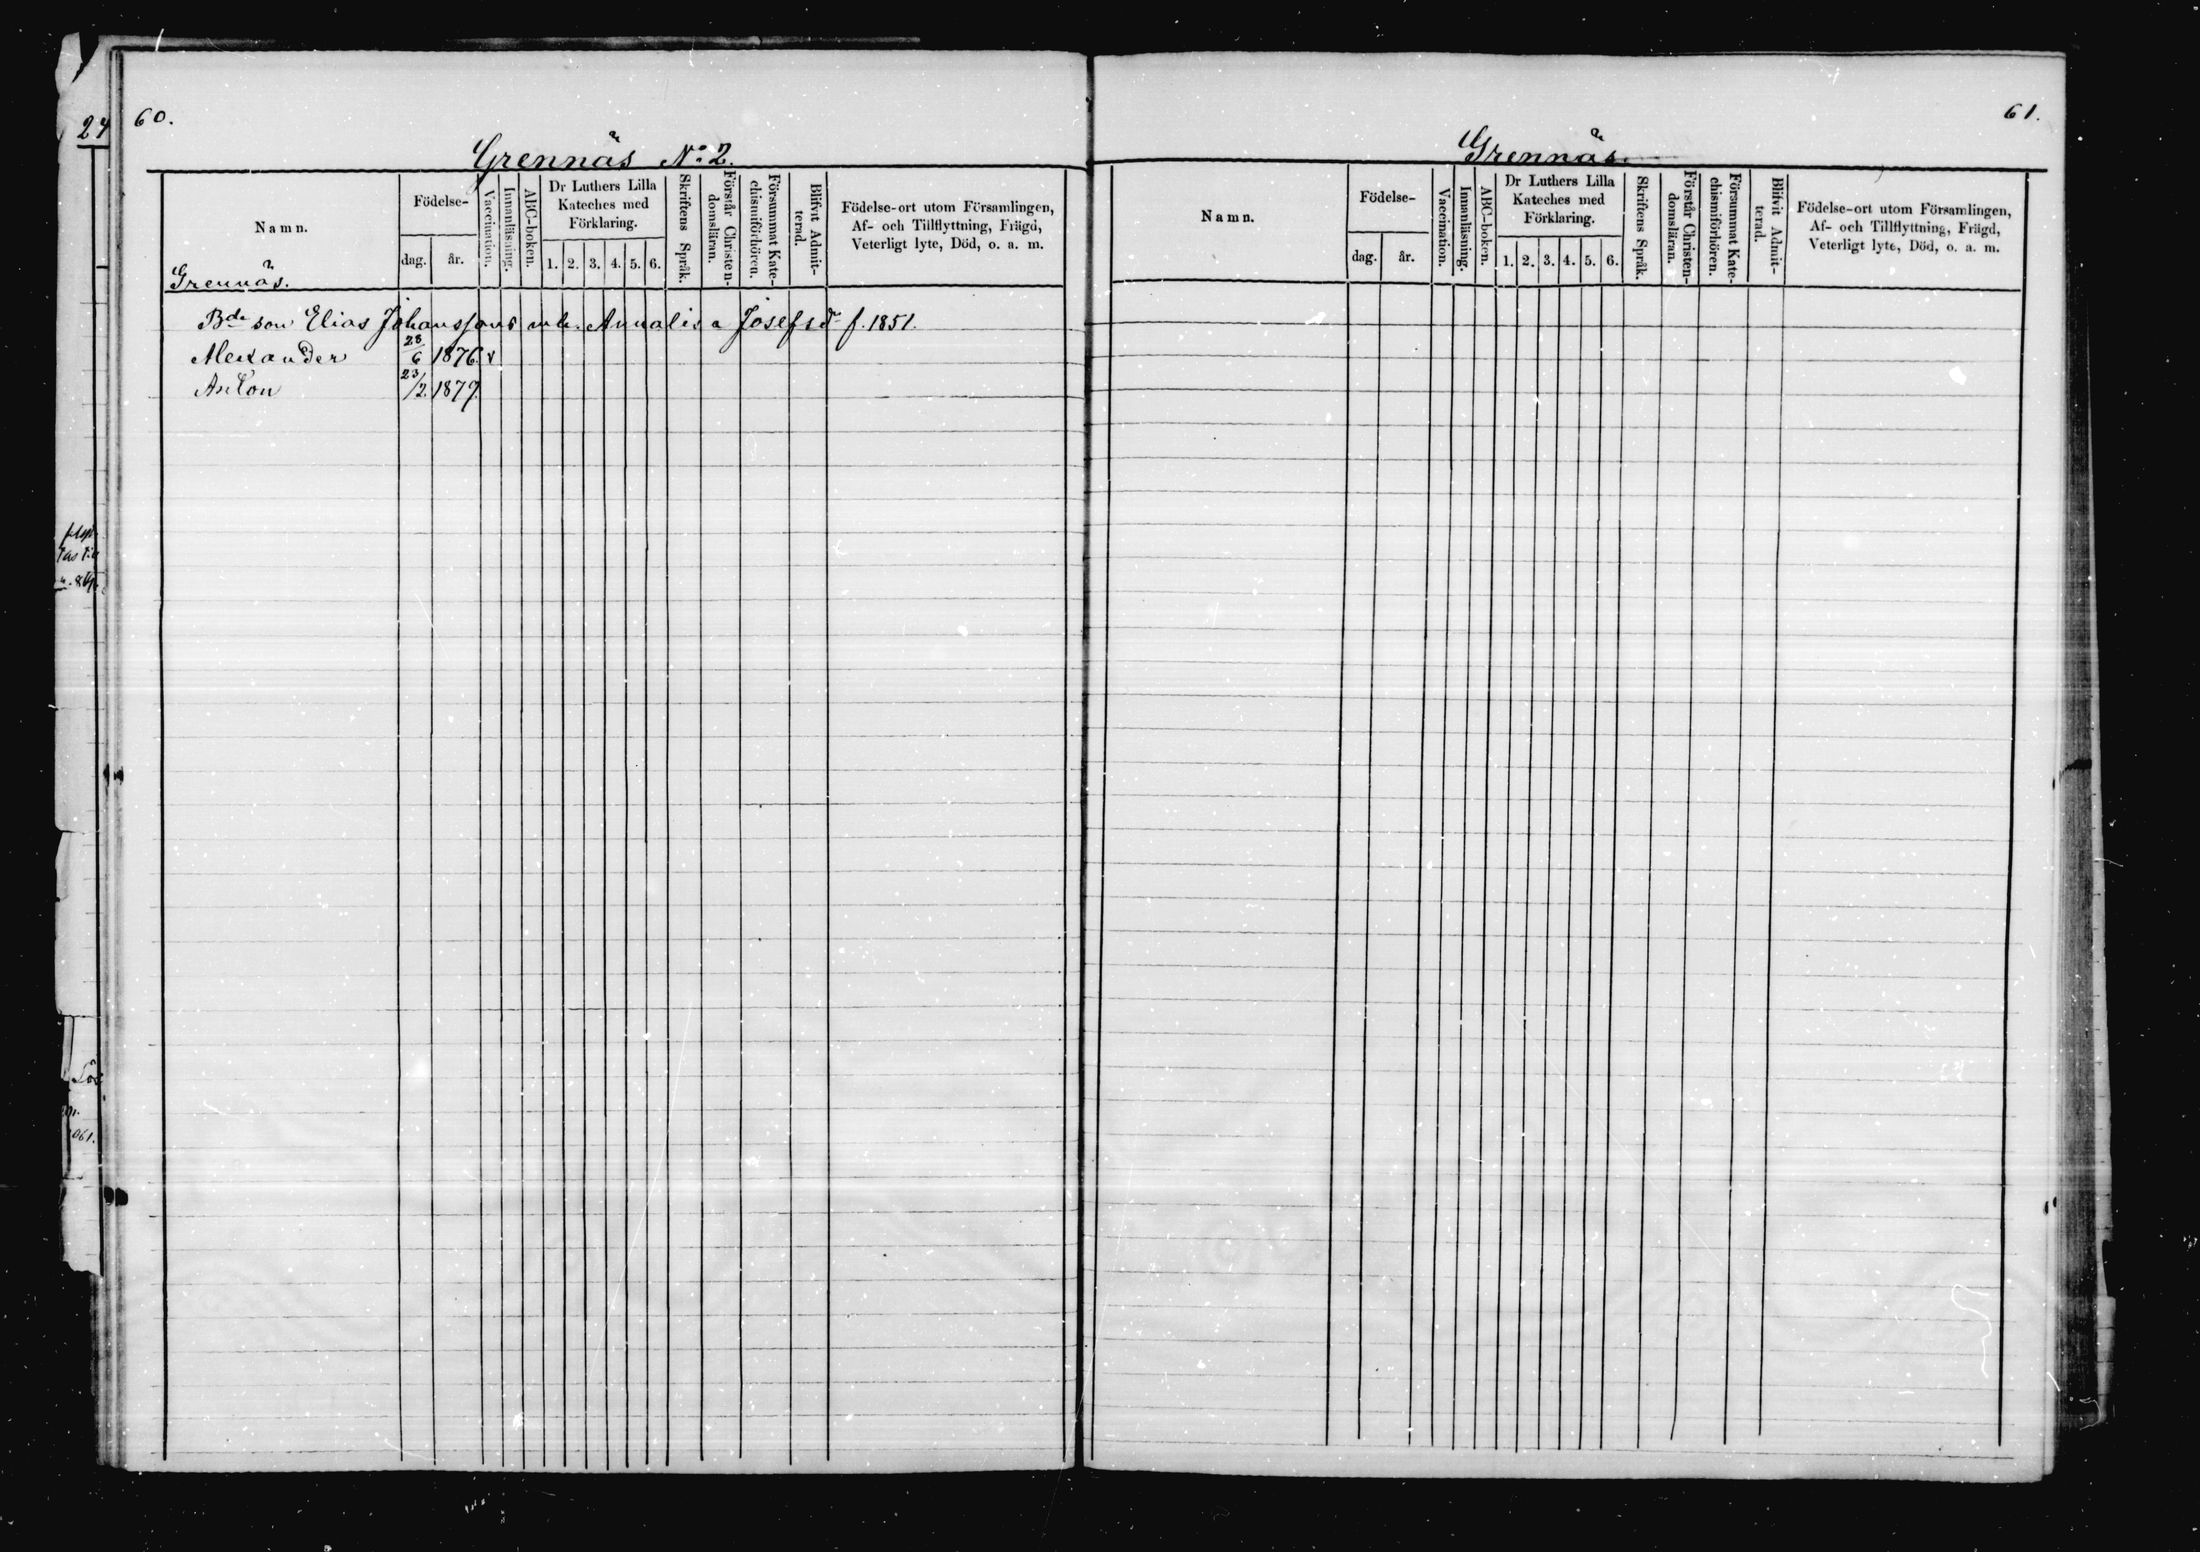 24
60.
Grennäs No 2.
Namn.
Födelse-
dag. år.
Vaccination.
Innanläsning.
ABC-boken.
Dr Luthers Lilla
Kateches med
Förklaring.
1. 2. 3. 4. 5. 6.
Skriftens Språk.
Förstår Christen-
domsläran.
Försummat Kate-
chismiförhören.
Blifvit Admit-
terad.
Födelse-ort utom Församlingen,
Af- och Tillflyttning, Frägd,
Veterligt lyte, Död, o. a. m.
Grennäs.
Bde son Elias Johanssons enk. Annalisa Josefsdr f. 1851.
Alexander 28/6 1876. v
Anton 23/2 1879.
61.
Grennäs.
Namn.
Födelse-
dag. år.
Vaccination.
Innanläsning.
ABC-boken.
Dr Luthers Lilla
Kateches med
Förklaring.
1. 2. 3. 4. 5. 6.
Skriftens Språk.
Förstår Christen-
domsläran.
Försummat Kate-
chismiförhören.
Blifvit Admit-
terad.
Födelse-ort utom Församlingen,
Af- och Tillflyttning, Frägd,
Veterligt lyte, Död, o. a. m.